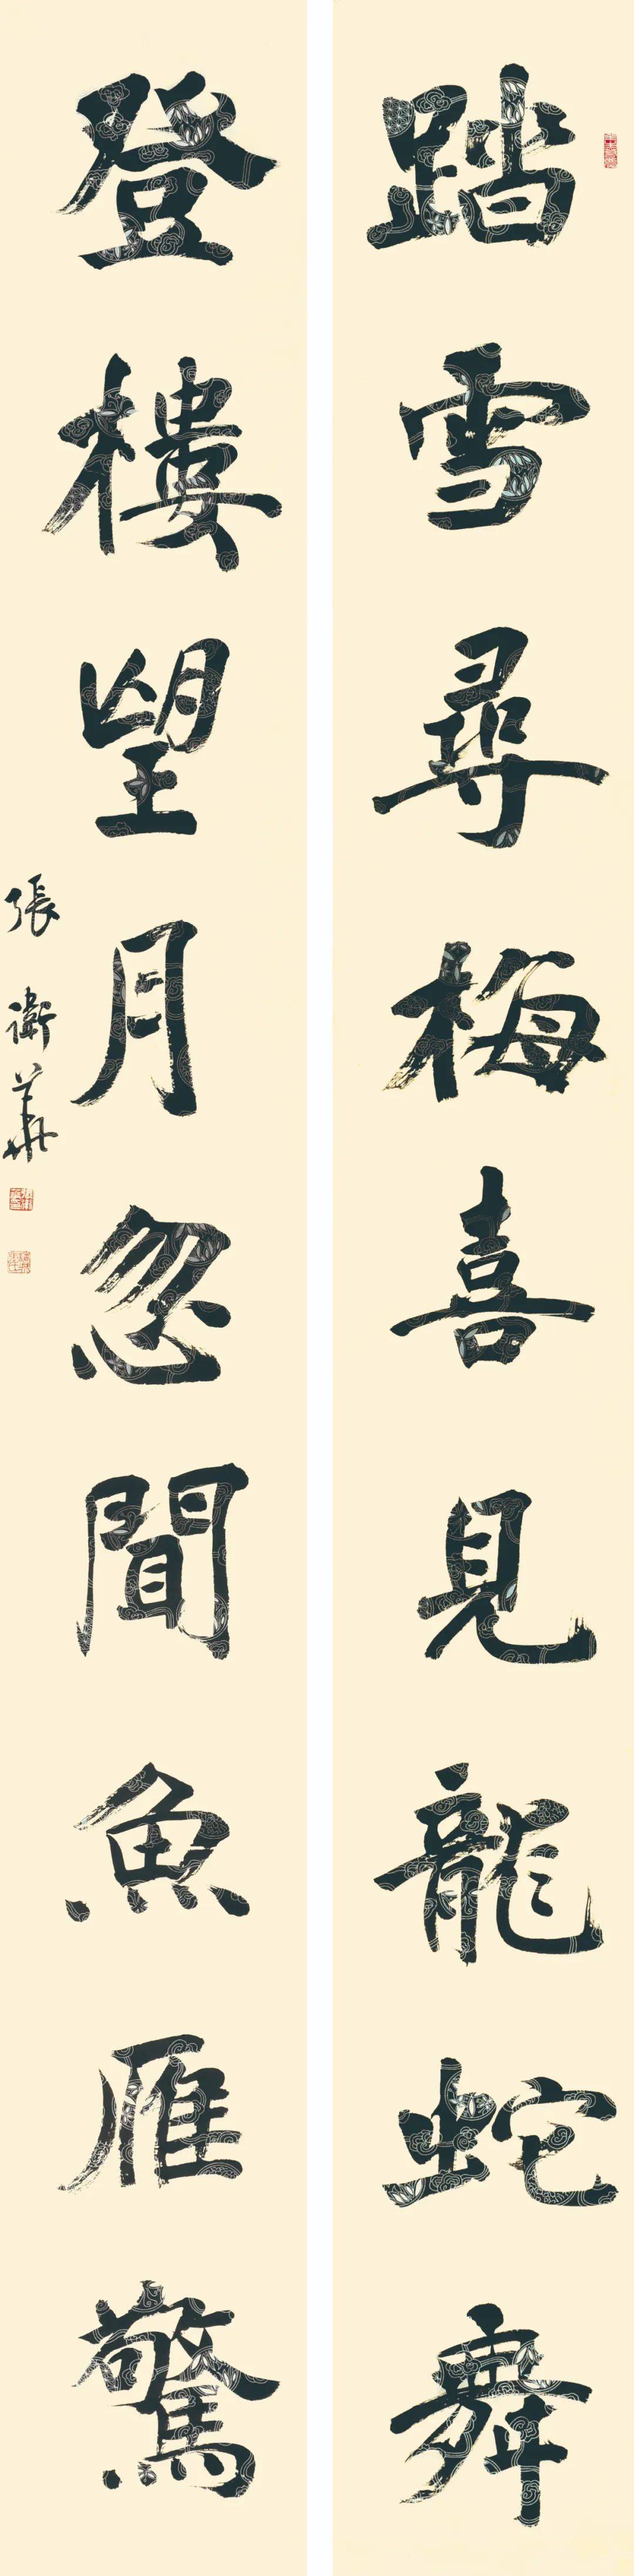 踏雪尋梅喜見龍蛇舞
登樓望月忽聞魚雁驚
張衛華